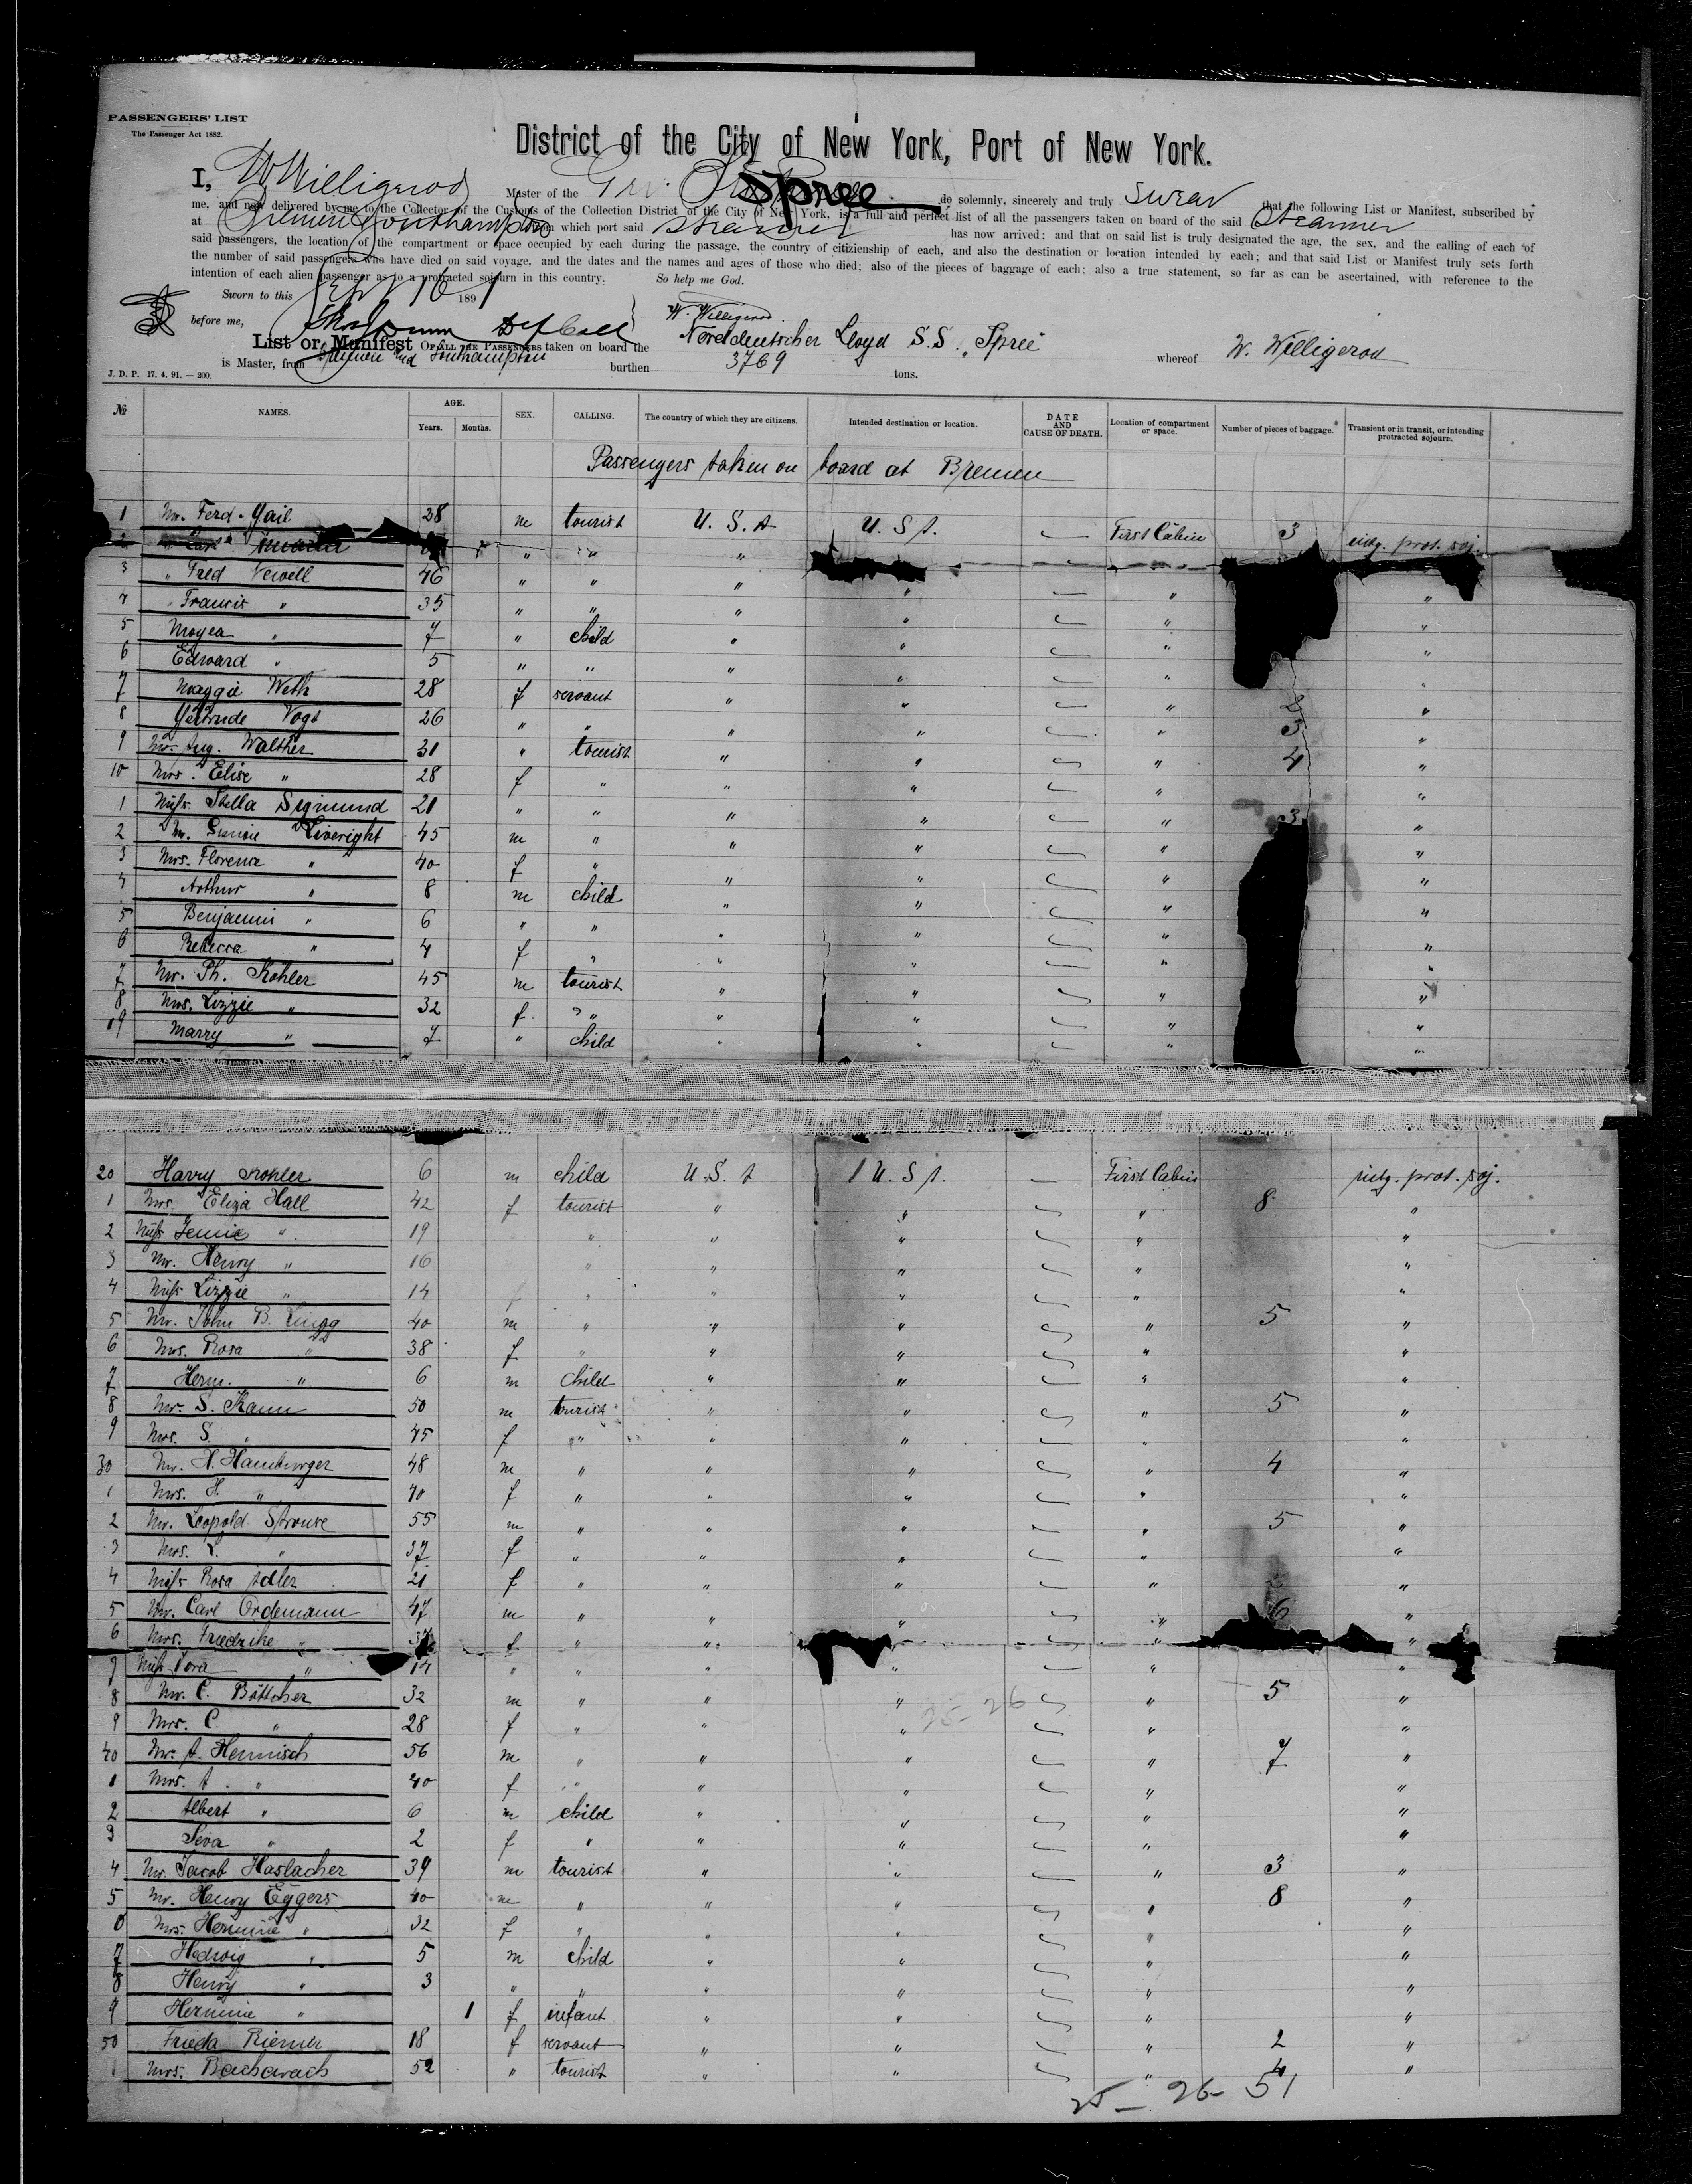 PASSENGERS' LIST
The Passenger Act 1882.
District of the City of New York, Port of New York.
I, W. Willigerod Master of the Spree do solemnly, sincerely and truly swear that the following List or Manifest, subscribed by
me, and now delivered by me to the Collector of the Customs of the Collection District of the City of New York, is a full and perfect list of all the passengers taken on board of the said Steamer
at Bremen Southampton from which port said Steamer has now arrived; and that on said list is truly designated the age, the sex, and the calling of each of
said passengers, the location of the compartment or space occupied by each during the passage, the country of citizienship of each, and also the destination or location intended by each; and that said List or Manifest truly sets forth
the number of said passengers who have died on said voyage, and the dates and the names and ages of those who died; also of the pieces of baggage of each; also a true statement, so far as can be ascertained, with reference to the
intention of each alien passenger as to a protracted sojourn in this country. So help me God.
Sworn to this Sept 16 1891
before me, W. Willigerod.
List or Manifest OF ALL THE PASSENGERS taken on board the Norddeutscher Lloyd S.S. "Spree" whereof W. Willigerod
is Master, from Bremen and Southampton burthen 3769 tons.
J. D. P. 17. 4. 91. — 200.
№ NAMES. AGE. Years. Months. SEX. CALLING. The country of which they are citizens. Intended destination or location. DATE AND CAUSE OF DEATH. Location of compartment or space. Number of pieces of baggage. Transient or in transit, or intending protracted sojourn.
Passengers taken on board at Bremen
1 Mr. Ferd. Gail 28 m tourist U. S. A U. S A. — First Cabin 3 intg. prot. soj.
2 " Carl " " " "
3 " Fred Newell 46 " " " " "
4 " Francis " 35 " " " " " "
5 Moyea " 7 " child " " " "
6 Edward " 5 " " " " " "
7 Maggie Weth 28 f servant " " " 2 "
8 Gertrude Vogt 26 " " " " " 3 "
9 Mr. Aug. Walther 31 " tourist " " " 4 "
10 Mrs. Elise " 28 f " " " " "
1 Miss Stella Sigmund 21 " " " " " 3 "
2 Mr. Liveright 45 m " " " " "
3 Mrs. Florence " 40 f " " " " "
4 Arthur " 8 m child " " " "
5 Benjamin " 6 " " " " " "
6 Rebecca " 4 f " " " " "
7 Mr. Ph. Kohler 45 m tourist " " " "
8 Mrs. Lizzie " 32 f " " " " "
19 Marry " 7 " child " " " "
20 Harry Kohler 6 m child U. S. A U. S A. — First Cabin intg. prot. soj.
1 Mrs. Eliza Hall 42 f tourist " " " 8 "
2 Miss Jennie " 19 " " " " "
3 Mr. Henry " 16 " " " " "
4 Miss Lizzie " 14 f " " " " "
5 Mr. John B. Lingg 40 m " " " " 5 "
6 Mrs. Rosa " 38 f " " " " "
7 Herm. " 6 m child " " " "
8 Mr. S. Kann 50 m tourist " " " 5 "
9 Mrs. S. " 45 f " " " " "
30 Mr. H. Hamburger 48 m " " " " 4 "
1 Mrs. H. " 40 f " " " " "
2 Mr. Leopold Strouse 55 m " " " " 5 "
3 Mrs. L. " 37 f " " " " "
4 Miss Rosa Adler 21 f " " " " "
5 Mr. Carl Ordemann 47 m " " " " 6 "
6 Mrs. Friedrike " f " " " " "
7 Miss " 14 " " " " " "
8 Mr. C. Böttcher 32 m " " " " 5 "
9 Mrs. C. " 28 f " " " " "
40 Mr. A. Hennisch 56 m " " " " 7 "
1 Mrs. A. " 40 f " " " " "
2 Albert " 6 m child " " " "
3 " 2 f " " " " "
4 Mr. Jacob Haslacher 39 m tourist " " " 3 "
5 Mr. Henry Eggers 40 m " " " " 8 "
6 Mrs. Hermine " 32 f " " " " "
7 Hedwig " 5 m child " " " "
8 Henry " 3 " " " " " "
9 Hermine " 1 f infant " " " "
50 Frieda Riemer 18 f servant " " " 2 "
1 Mrs. Bacharach 52 " tourist " " " 4 "
25-26
25 - 26- 51